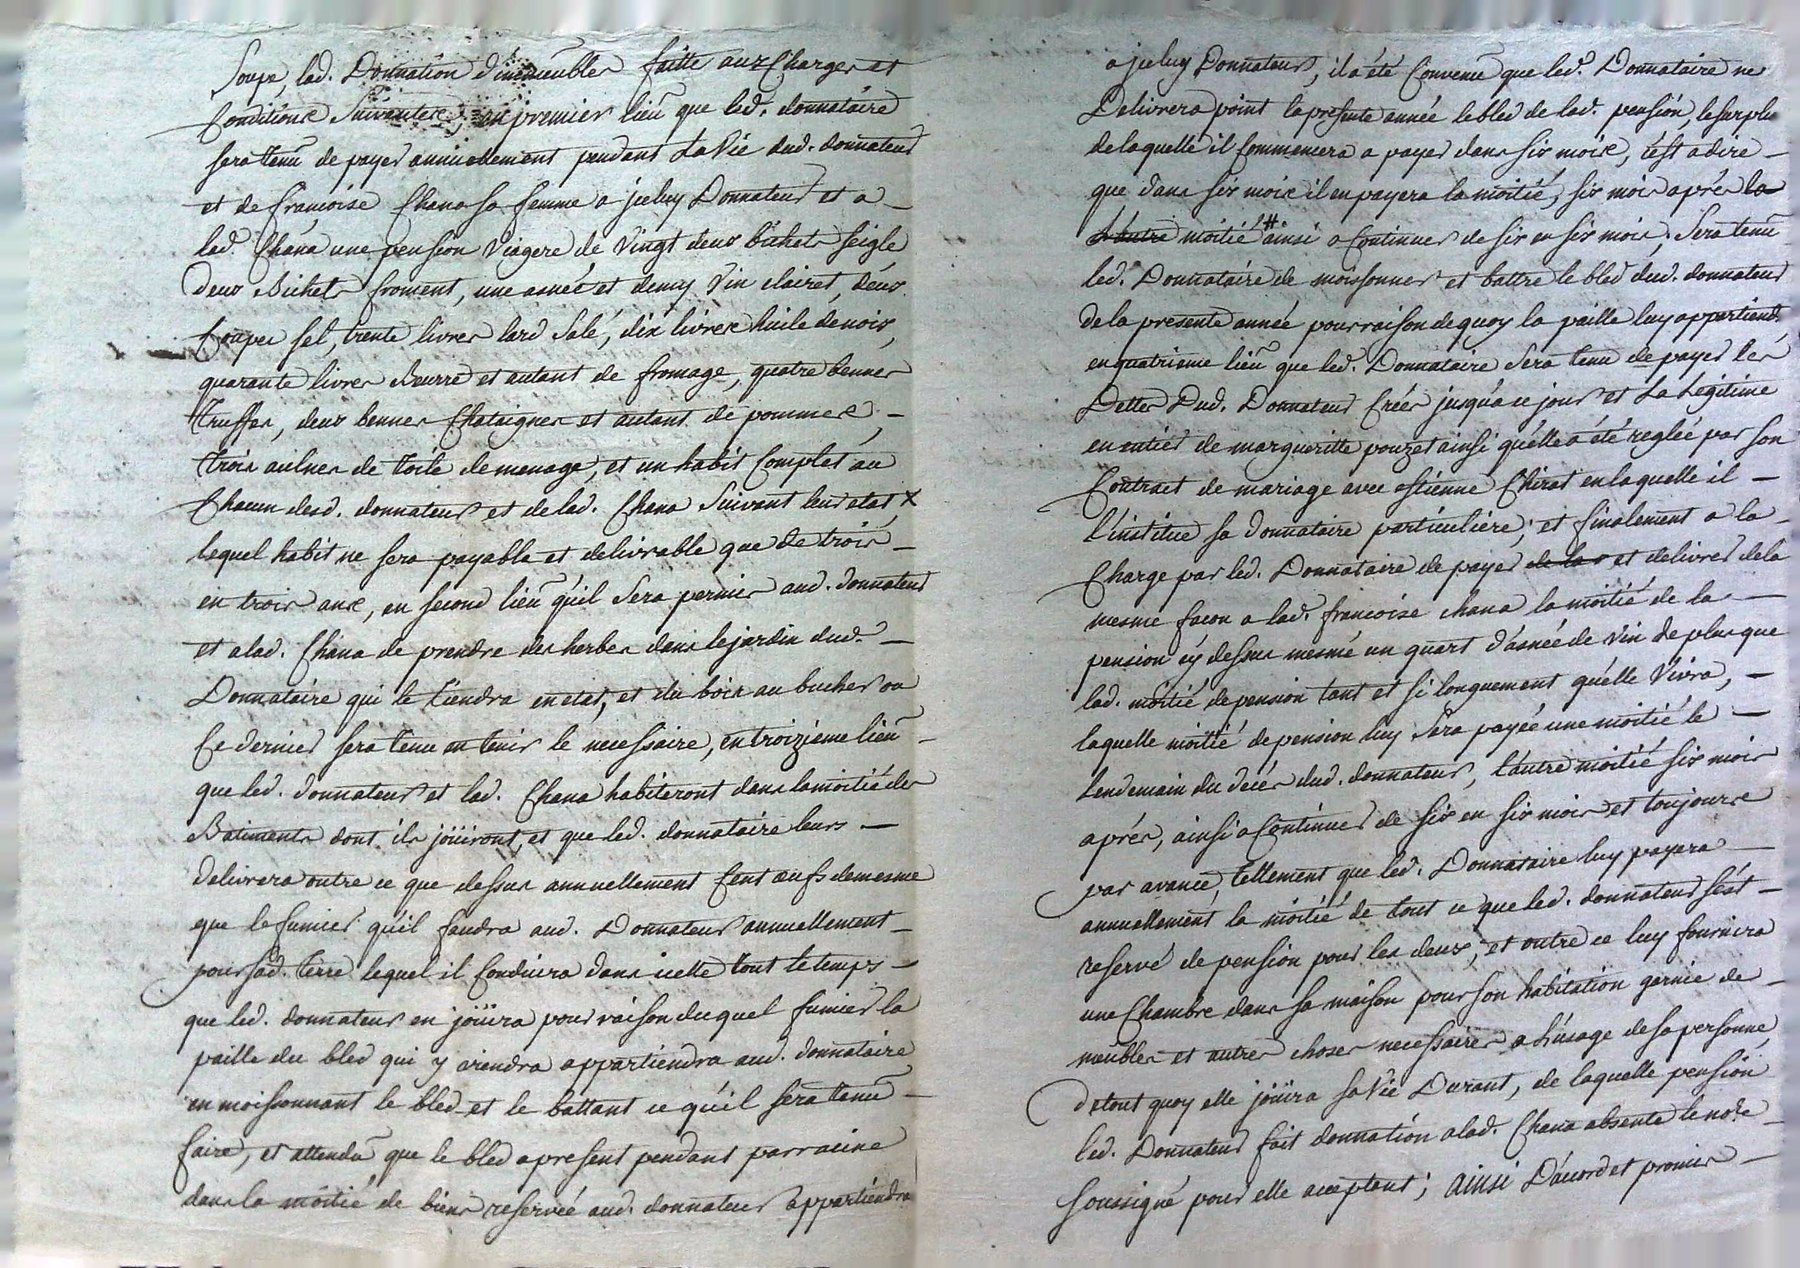 Soupe, lad. Donnation d'immeubles faitte aux Charges et
Conditions Suivantes, en premier lieu que led. donnataire
sera tenu de payer annuellement pendant La Vie dud. donnateur
et de francoise Chana sa femme a jceluy Donnateur et a
lad. Chana une pension Viagere de Vingt deux bichets seigle
deux Bichets froment, une asnée et demy Vin clairet, deux
Coupes sel, trente livres lard salé, dix livres huile de noix,
quarante livres Beurre et autant de fromage, quatre bennes
Truffes, deux bennes Chataignes et autant de pommes,
trois aulnes de toile de menage, et un habit Complet au
Chacun desd. donnateur et de lad. Chana Suivant leur etat x
lequel habit ne sera payable et delivrable que de trois
en trois ans, en second lieu qu'il Sera permis aud. donnateur
et a lad. Chana de prendre des herbes dans le jardin dud.
Donnataire qui le tiendra en etat, et du bois au bucher ou
Ce dernier sera tenu en tenir le necessaire, en troizième lieu
que led. donnateur et lad. Chana habiteront dans la moitié des
Batiments dont ils joüiront, et que led. donnataire leurs
delivrera outre ce que dessus annuellement Cent œufs de mesme
que le fumier qu'il faudra aud. Donnateur annuellement
pour sad. terre lequel il Conduira dans icelle tout le temps
que led. donnateur en joüira pour raison duquel fumier la
paille du bled qui y viendra appartiendra aud. donnataire
en moissonnant le bled et le battant ce qu'il sera tenu
faire, et attendu que le bled apresent pendant par racine
dans la moitié de biens reservée aud. donnateur appartiendra
a jceluy Donnateur, il a été Convenu que led. Donnataire ne
Delivrera point la presente année le bled de lad. pension, le surplus
de laquelle il Commencera a payer dans six mois, c'est a dire
que dans six mois il en payera la moitié, six mois aprés la
L'autre moitié # ainsi a Continuer de six en six mois; Sera tenu
led. Donnataire de moissonner et battre le bled dud. donnateur
de la presente année pour raison de quoy la paille luy appartiend.
en quatrieme lieu que led. Donnataire Sera tenu de payer les
Dettes Dud. Donnateur Créés jusqu'a ce jour et La Légitime
en entier de margueritte pouzet ainsi qu'elle a été reglée par son
Contract de mariage avec estienne Chirat en laquelle il
l'institue sa donnataire particuliere; et finalement a la
Charge par led. Donnataire de payer de lad et delivrer de la
mesme facon a lad. francoise chana la moitié de la
pension cy dessus mesme un quart d'asnée de vin de plus que
lad. moitié de pension tant et si longuement qu'elle Vivra,
laquelle moitié de pension luy Sera payée une moitié le
Lendemain du decés dud. donnateur, l'autre moitié six mois
aprés, ainsi a Continuer de six en six mois et toujours
par avance, tellement que led. Donnataire luy payera
annuellement la moitié de tout ce que led. donnateur s'est
reservé de pension pour les deux, et outre ce luy fournira
une Chambre dans sa maison pour son habitation garnie de
meubles et autres choses necessaires a L'usage de sa personne,
de tout quoy elle joüira sa Vie Durant, de laquelle pension
led. Donnateur fait donnation a lad. Chana absente le no.re
soussigné pour elle acceptant; ainsi D'accord et promis